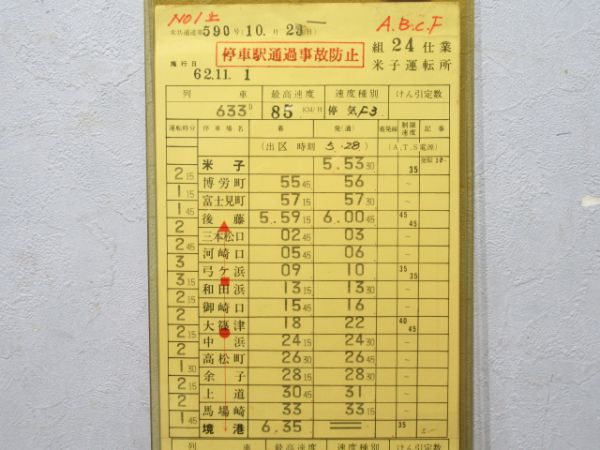 NO1上
米共通達第590号(10.月23日)
A.B.C.F
停車駅通過事故防止
組 24 仕業
米子運転所
施行日 62.11. 1
列 車 最高速度 速度種別 けん引定数
633D 85 KM/H 停気F3
運転時分 停車場名 着 発(通) 着発線 制限速度 記事
(出区 時刻 5.28) (A.T.S電源)
米子 5.53 30 35
2 15 博労町 55 45 56
1 15 富士見町 57 15 57 30
1 45 後藤 5.59 15 6.00 45 45 45
2 三本松口 02 45 03 ~
2 河崎口 05 45 06 ~
3 弓ケ浜 09 10 35 35
3 15 和田浜 13 15 13 30 ~
2 御崎口 15 45 16 ~
2 大篠津 18 22 40 45
2 15 中浜 24 15 24 ~
2 高松町 26 30 26 ~
2 余子 28 15 28 30 ~
2 15 上道 30 45 31 ~
2 馬場崎 33 33 15 ~
1 45 境港 6.35 35
列 車 最高速度 速度種別 けん引定数